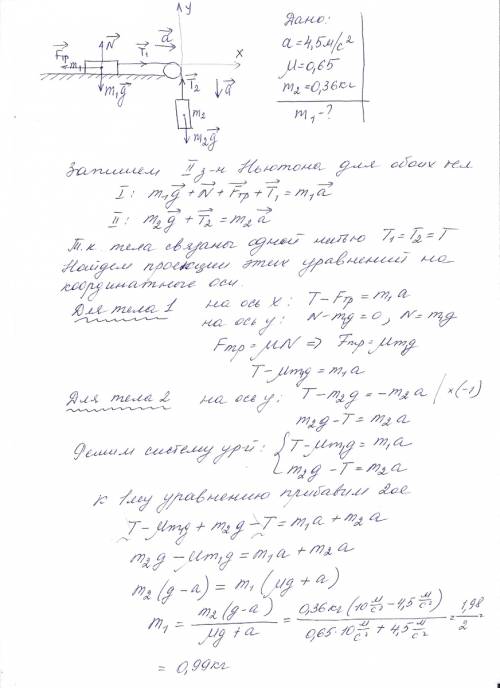 y
Дано:
a = 4,5 м/с²
μ = 0,65
m₂ = 0,36 кг
m₁ - ?
F⃗тр m₁ N⃗ T⃗₁ a⃗ x
m₁g⃗ T⃗₂ a⃗
m₂
m₂g⃗
Запишем II з-н Ньютона для обоих тел
I: m₁g⃗ + N⃗ + F⃗тр + T⃗₁ = m₁a⃗
II: m₂g⃗ + T⃗₂ = m₂a⃗
Т.к тела связана одной нитью T₁ = T₂ = T
Найдем проекции этих уравнений на
координатного оси.
Для тела 1 на ось x: T - Fтр = m₁a
на ось y: N - m₁g = 0, N = m₁g
Fтр = μN => Fтр = μm₁g
T - μm₁g = m₁a
Для тела 2 на ось y: T - m₂g = -m₂a | ×(-1)
m₂g - T = m₂a
Решим систему ур-й: { T - μm₁g = m₁a
m₂g - T = m₂a
К 1му уравнению прибавим 2ое
T - μm₁g + m₂g - T = m₁a + m₂a
m₂g - μm₁g = m₁a + m₂a
m₂(g - a) = m₁(μg + a)
m₁ = m₂(g - a) / μg + a = 0,36 кг (10 м/с² - 4,5 м/с²) / 0,65 · 10 м/с² + 4,5 м/с² = 1,98 / 2 =
= 0,99 кг